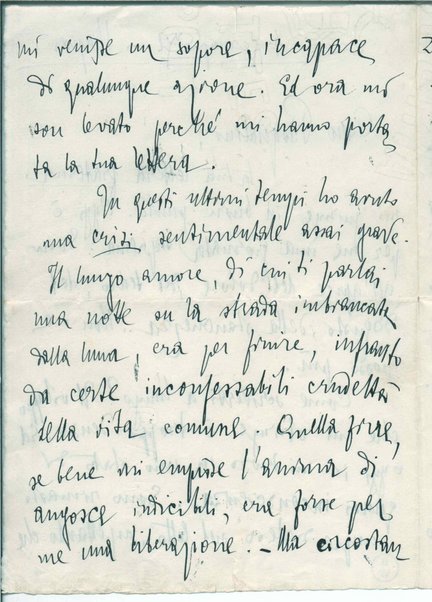 mi venisse un sopore, incapace
di qualunque azione. Ed ora mi
son levato perché mi hanno porta
ta la tua lettera.
In questi ultimi tempi ho avuto
una crisi sentimentale assai grave.
Il lungo amore, di cui ti parlai
una notte su la strada imbiancata
dalla luna, era per finire,
da certe inconfessabili crudeltà
della vita comune. Quella fine,
se bene mi empisse l'anima di
angosce indicibili, era forse per
me una liberazione. – Ma circostan